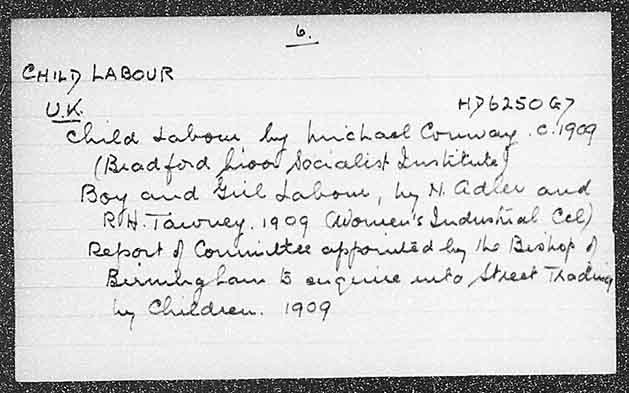 6.
CHILD LABOUR
U.K. HD6250G7
Child Labour by Michael Conway. c.1909
(Bradford Socialist Institute)
Boy and Girl Labour, by N. Adler and
R.H. Tawney. 1909 (Women's Industrial Ccl)
Report of Committee appointed by the Bishop of
Birmingham to enquire into Street Trading
by Children. 1909